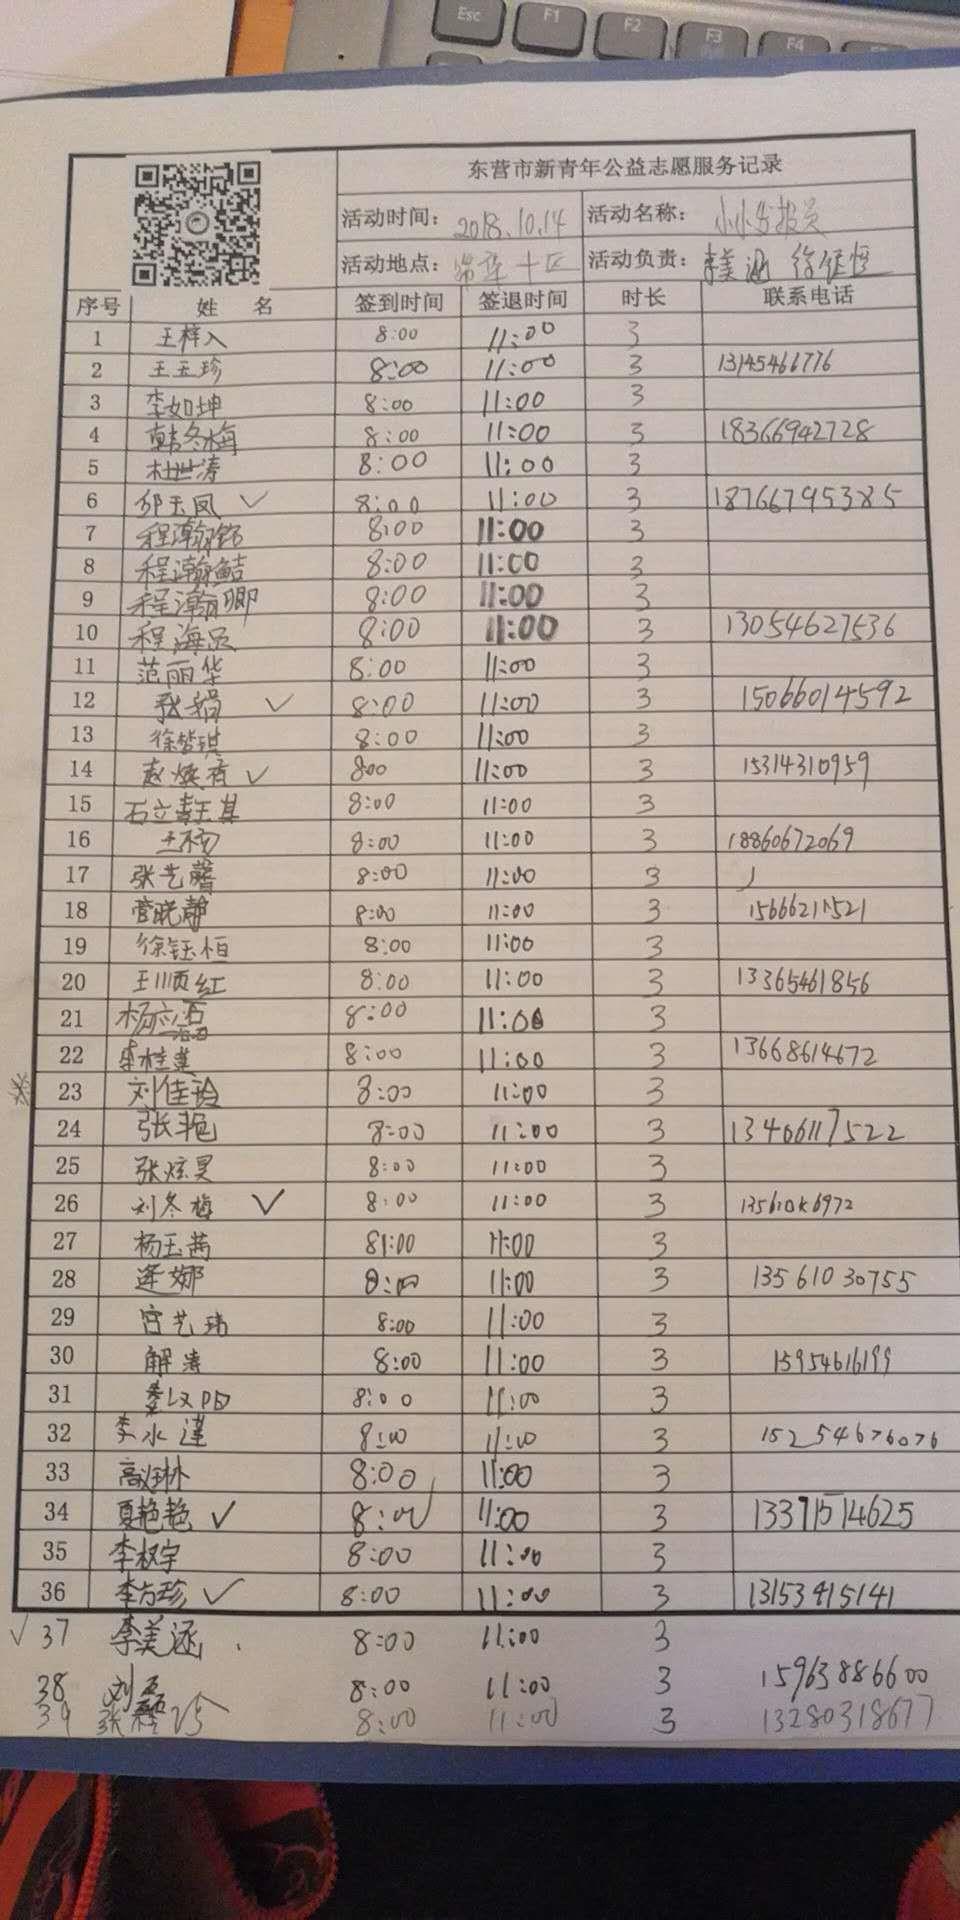 Esc F1 F2 F3 F4
东营市新青年公益志愿服务记录
活动时间: 2018.10.14 活动名称: 小小分报员
活动地点: 十区 活动负责: 李美涵
序号 姓 名 签到时间 签退时间 时长 联系电话
1 王梓入 8:00 11:00 3
2 王玉珍 8:00 11:00 3 13145466776
3 李如坤 8:00 11:00 3
4 韩冬梅 8:00 11:00 3 18366942728
5 杜世涛 8:00 11:00 3
6 邹玉凤 ✓ 8:00 11:00 3 18766795385
7 程瀚铭 8:00 11:00 3
8 程瀚 8:00 11:00 3
9 程瀚卿 8:00 11:00 3
10 程海 8:00 11:00 3 13054627536
11 范丽华 8:00 11:00 3
12 张娟 ✓ 8:00 11:00 3 15066014592
13 徐皙琪 8:00 11:00 3
14 赵焕 ✓ 8:00 11:00 3 15314310959
15 石立 8:00 11:00 3
16 王杨 8:00 11:00 3 18860672069
17 张艺馨 8:00 11:00 3
18 管晓静 8:00 11:00 3
19 徐钰桓 8:00 11:00 3
20 王顺红 8:00 11:00 3 13365461856
21 杨 8:00 11:00 3
22 李桂 8:00 11:00 3 13668614672
23 刘佳玲 8:00 11:00 3
24 张艳 8:00 11:00 3 13406117522
25 张炫昊 8:00 11:00 3
26 刘冬梅 ✓ 8:00 11:00 3
27 杨玉茜 8:00 11:00 3
28 逄娜 8:00 11:00 3 13561030755
29 宫艺玮 8:00 11:00 3
30 解涛 8:00 11:00 3 15954616199
31 8:00 11:00 3
32 李水 8:00 11:00 3 15254676076
33 高 琳 8:00 11:00 3
34 夏艳艳 ✓ 8:00 11:00 3 13371514625
35 李权宇 8:00 11:00 3
36 李方珍 ✓ 8:00 11:00 3 13153415141
✓ 37 李美涵 8:00 11:00 3
38 刘磊 8:00 11:00 3 15963886600
39 张 8:00 11:00 3 13280318677